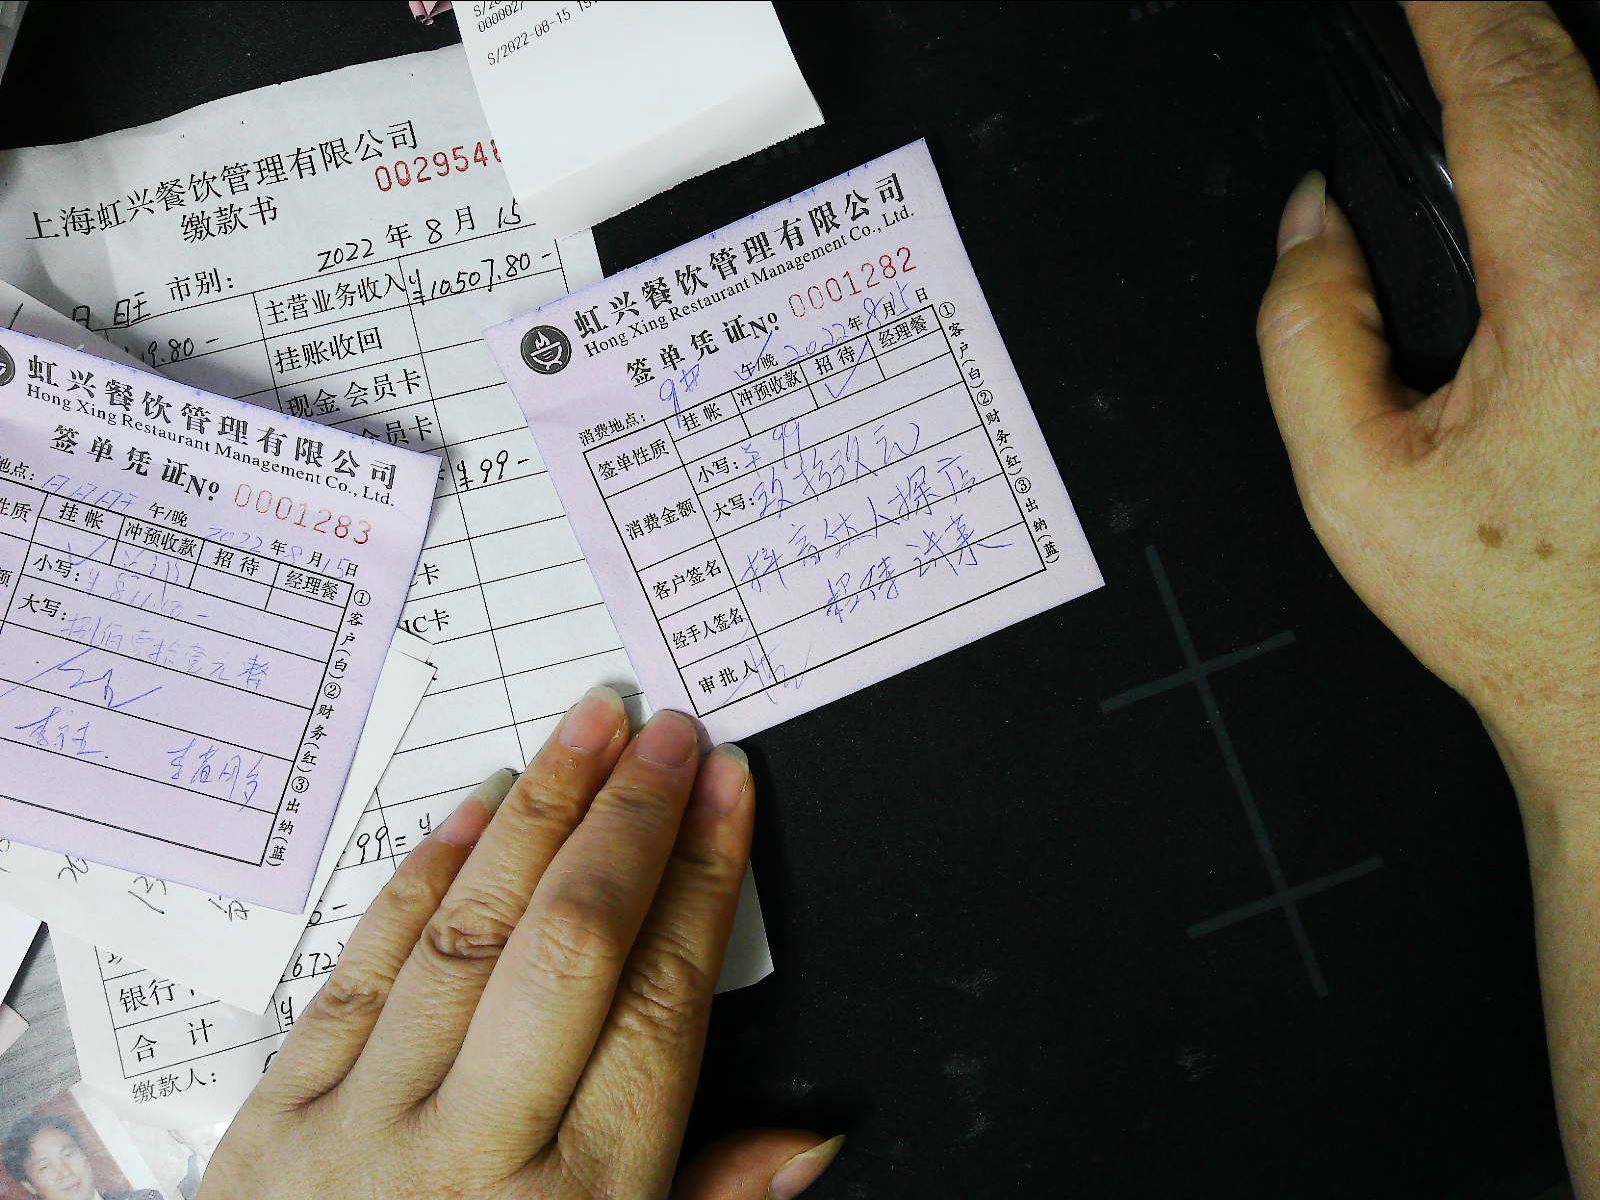 S/2022-08-15
上海虹兴餐饮管理有限公司
002954
缴款书
2022 年 8 月 15
市别：
主营业务收入 ¥10507.80-
挂账收回
现金会员卡
会员卡
¥99-
卡
IC卡
银行
合 计
缴款人：
虹兴餐饮管理有限公司
Hong Xing Restaurant Management Co., Ltd.
签单凭证 No 0001282
消费地点： 9# 午/晚 2022年8月15日
签单性质 挂帐 冲预收款 招待 ✓ 经理餐
消费金额 小写：¥99
大写：玖拾玖元
客户签名 抖音达人探店
经手人签名 招待 试菜
审批人
①客户(白)②财务(红)③出纳(蓝)
虹兴餐饮管理有限公司
Hong Xing Restaurant Management Co., Ltd.
签单凭证 No 0001283
地点： 午/晚 2022年8月15日
性质 挂帐 ✓ 冲预收款 招待 经理餐
额 小写：
大写：捌佰壹拾壹元整
①客户(白)②财务(红)③出纳(蓝)